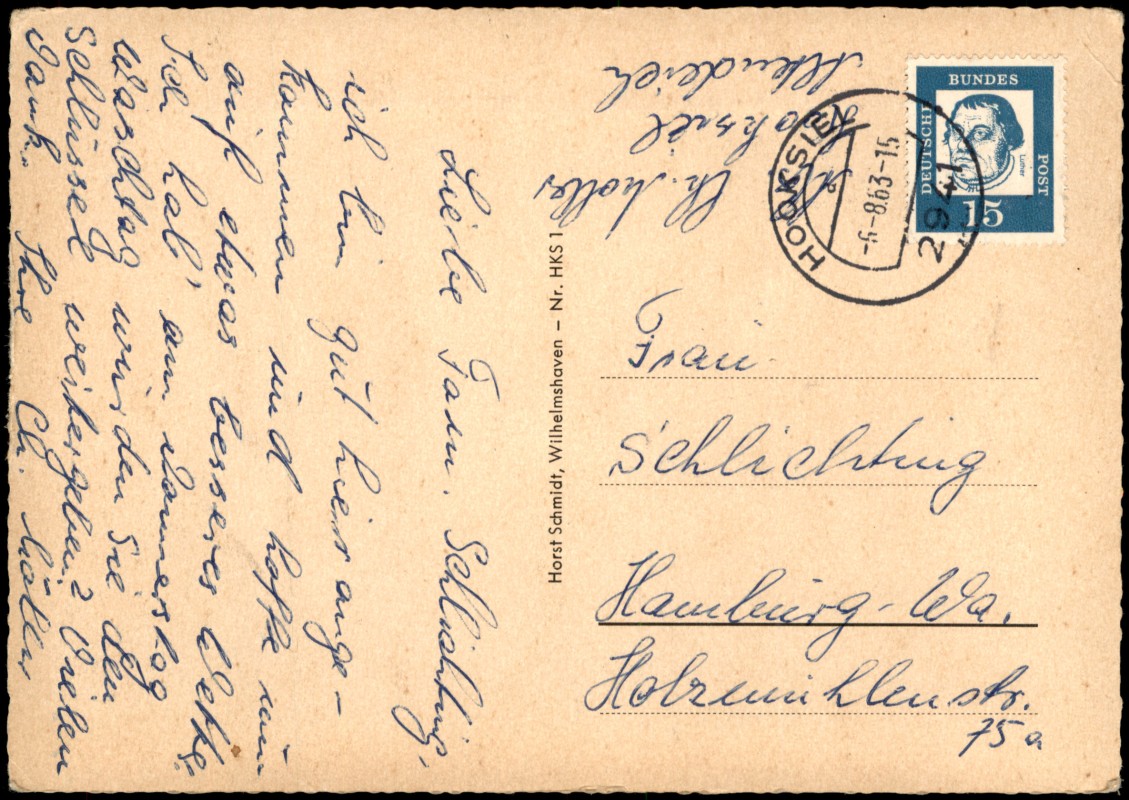 Liebe Fam. Schlichting,
ich bin gut hier ange-
kommen und hoffe nun
auf etwas besseres Wetter.
Ich hab' am Donnerstag
Waschtag würden Sie den
Schlüssel weitergeben? Vielen
Dank. Ihre Ch.
Ch.
Hooksiel
Horst Schmidt, Wilhelmshaven – Nr. HKS 1
DEUTSCHE
BUNDES
POST
Luther
15
HOOKSIEL
-6-8.63-15
2941
Frau
Schlichting
Hamburg-Wa.
Holzmühlenstr.
75a